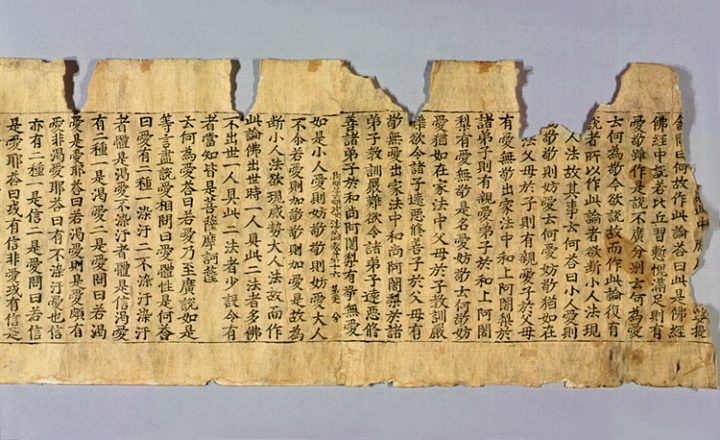 曰何故作此論荅曰此是佛經
佛經中說若比丘習慙愧滿足則有
愛敬雖作是說不廣分別云何為愛
云何為敬今欲說故而作此論復有
說者所以作此論者欲斷小人法現
人法故其事云何荅曰小人愛則
敬敬則妨愛云何愛妨敬猶如在
法父母於子則有親愛子於父母
有愛無敬出家法中和上阿闍梨於
諸弟子則有親愛弟子於和上阿闍
梨有愛無敬是名愛妨敬云何敬妨
愛猶如在家法中父母於子教訓嚴
難欲令諸子遠惡修善子於父母有
敬無愛出家法中和尚阿闍梨於諸
弟子教訓嚴難欲令諸弟子遠惡修
善諸弟子於和尚阿闍梨有敬無愛
如是小人愛則妨敬敬則妨愛大人
不尒若愛則加敬敬則加愛是故為
斷小人法欲現感勢大人法故而作
此論佛出世時一人具此二法者多佛
不出世一人具此二法者少設今有
者當知皆是菩薩摩訶薩
云何為愛荅曰若愛乃至廣說如是
等言盡說愛相問曰愛體性是何荅
曰愛有二種一染汙二不染汙染汙
者體是渴愛不染汙者體是信渴愛
有二種一是渴愛二是愛問曰若渴
愛是愛耶荅曰若渴愛則是愛頗有
愛非渴愛耶荅曰有不染汙愛也信
亦有二種一是信二是愛問曰若信
是愛耶荅曰或有信非愛或有信是